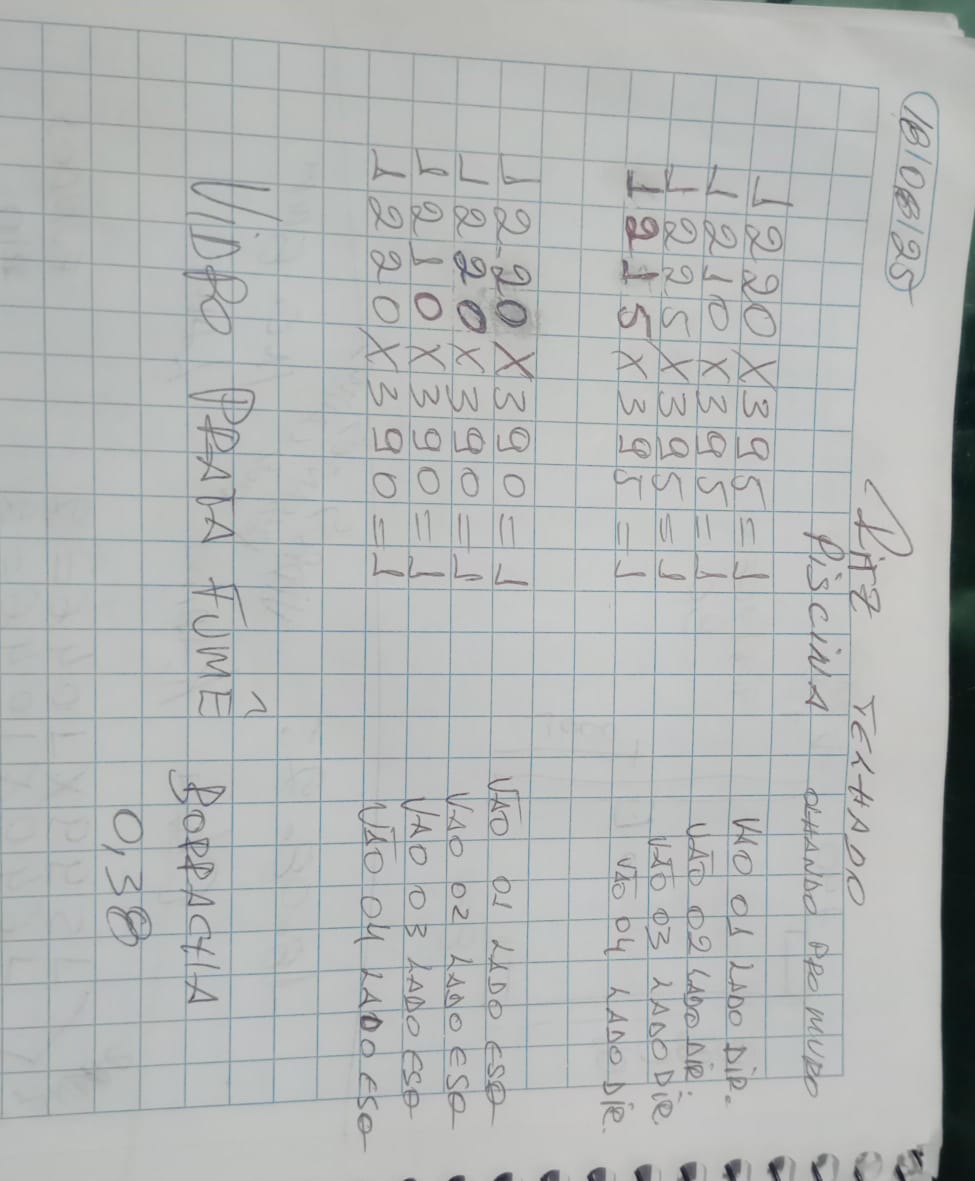 18/08/25
LUZ TELHADO
PISCINA OLHANDO PRO MURO
1220X395=1 VAO 01 LADO DIR.
1210X395=1 VÃO 02 LADO DIR.
1225X395=1 VÃO 03 LADO DIR.
1215X395=1 VÃO 04 LADO DIR.
1220X390=1 VÃO 01 LADO ESQ
1220X390=1 VAO 02 LADO ESQ
1210X390=1 VAO 03 LADO ESQ
1220X390=1 VÃO 04 LADO ESQ
VIDRO PRATA FUMÊ BORRACHA
0,38